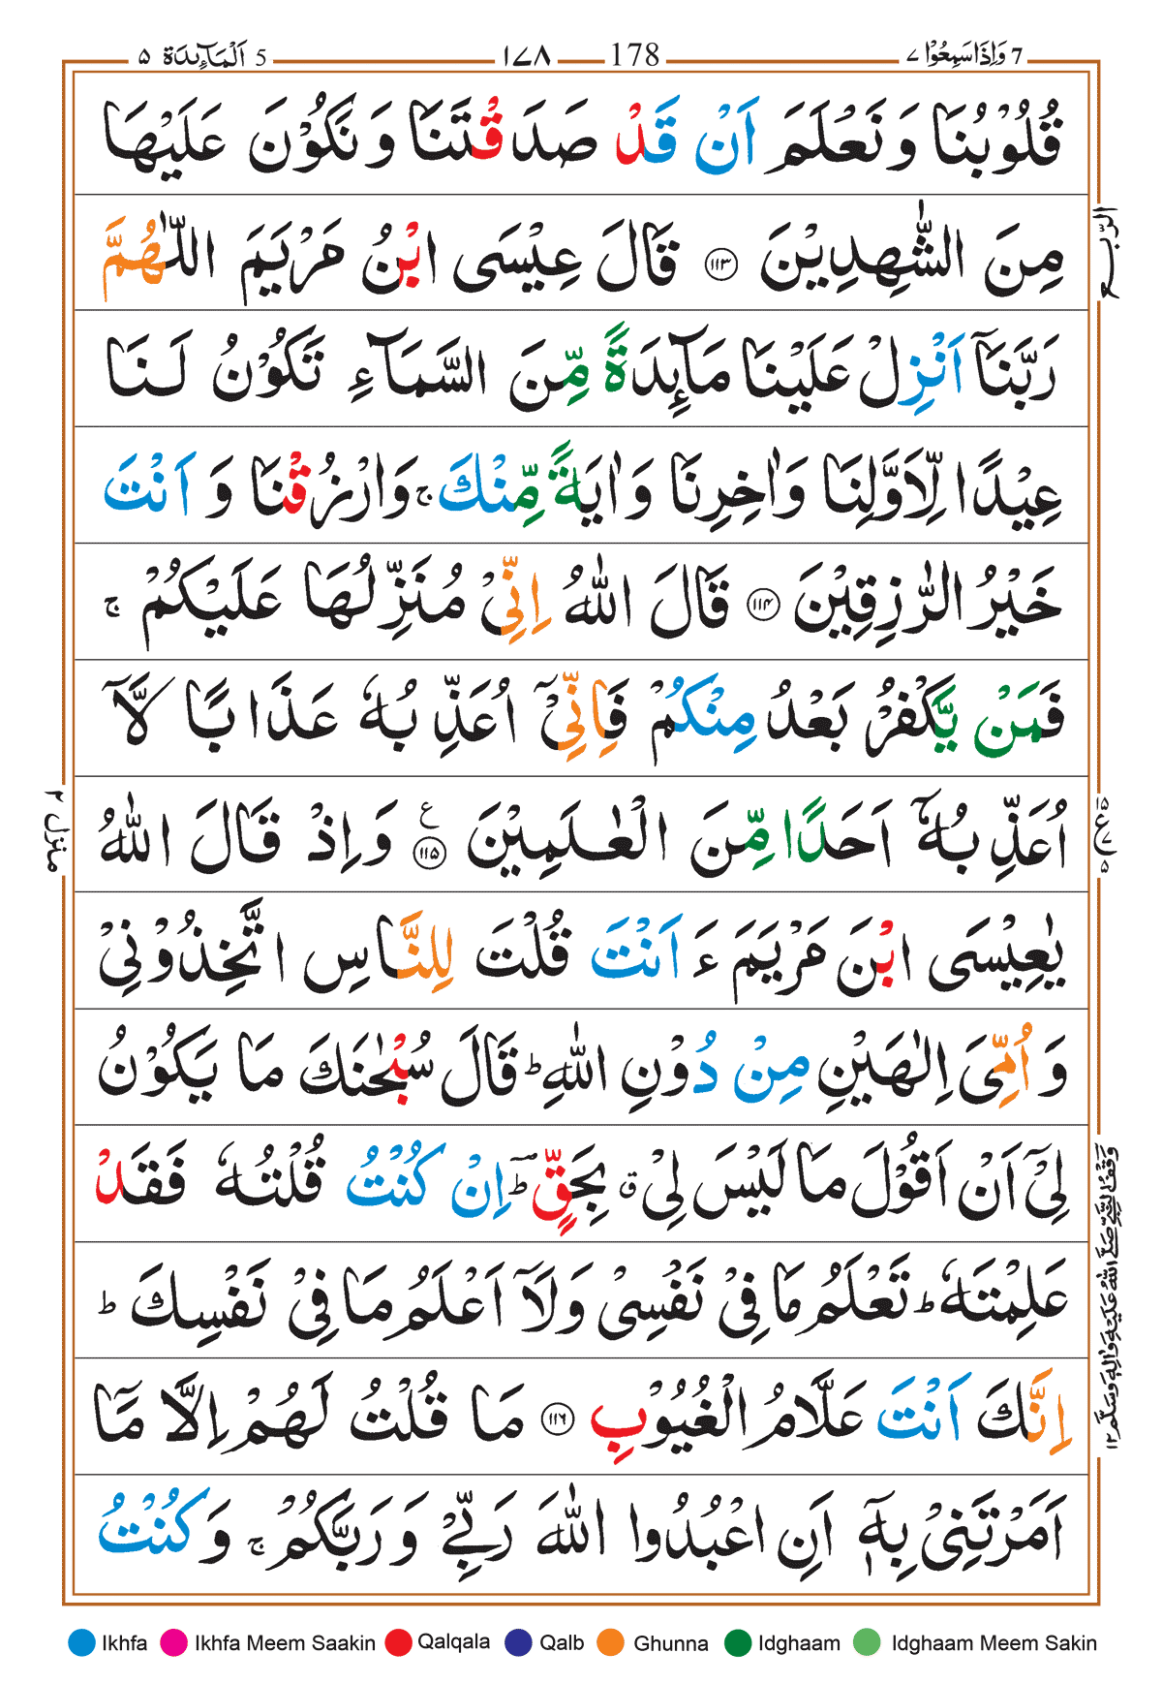 اَلْمَآىِٕدَة ٥ 5 ١٧٨ 178 وَاِذَاسَمِعُوْا ٧ 7
قُلُوْبُنَا وَ نَعْلَمَ اَنْ قَدْ صَدَقْتَنَا وَ نَكُوْنَ عَلَيْهَا
مِنَ الشّٰهِدِيْنَ ۝١١٣ قَالَ عِيْسَى ابْنُ مَرْيَمَ اللّٰهُمَّ
رَبَّنَاۤ اَنْزِلْ عَلَيْنَا مَآىِٕدَةً مِّنَ السَّمَآءِ تَكُوْنُ لَنَا
عِيْدًا لِّاَوَّلِنَا وَ اٰخِرِنَا وَ اٰيَةً مِّنْكَ ۚ وَ ارْزُقْنَا وَ اَنْتَ
خَيْرُ الرّٰزِقِيْنَ ۝١١٤ قَالَ اللّٰهُ اِنِّيْ مُنَزِّلُهَا عَلَيْكُمْ ۚ
فَمَنْ يَّكْفُرْ بَعْدُ مِنْكُمْ فَاِنِّيْۤ اُعَذِّبُهٗ عَذَابًا لَّاۤ
اُعَذِّبُهٗۤ اَحَدًا مِّنَ الْعٰلَمِيْنَ ۝١١٥ ع وَ اِذْ قَالَ اللّٰهُ
يٰعِيْسَى ابْنَ مَرْيَمَ ءَ اَنْتَ قُلْتَ لِلنَّاسِ اتَّخِذُوْنِيْ
وَ اُمِّيَ اِلٰهَيْنِ مِنْ دُوْنِ اللّٰهِ ؕ قَالَ سُبْحٰنَكَ مَا يَكُوْنُ
لِيْۤ اَنْ اَقُوْلَ مَا لَيْسَ لِيْ ۗ بِحَقٍّ ؕ اِنْ كُنْتُ قُلْتُهٗ فَقَدْ
عَلِمْتَهٗ ؕ تَعْلَمُ مَا فِيْ نَفْسِيْ وَ لَاۤ اَعْلَمُ مَا فِيْ نَفْسِكَ ؕ
اِنَّكَ اَنْتَ عَلَّامُ الْغُيُوْبِ ۝١١٦ مَا قُلْتُ لَهُمْ اِلَّا مَاۤ
اَمَرْتَنِيْ بِهٖۤ اَنِ اعْبُدُوا اللّٰهَ رَبِّيْ وَ رَبَّكُمْ ۚ وَ كُنْتُ
الرّبع
منزل ٢
ع ٥ ٧ ٥
وَقْفُ النَّبِيِّ صَلَّى اللّٰهُ عَلَيْهِ وَاٰلِهٖ وَسَلَّمَ ١٢
Ikhfa Ikhfa Meem Saakin Qalqala Qalb Ghunna Idghaam Idghaam Meem Sakin